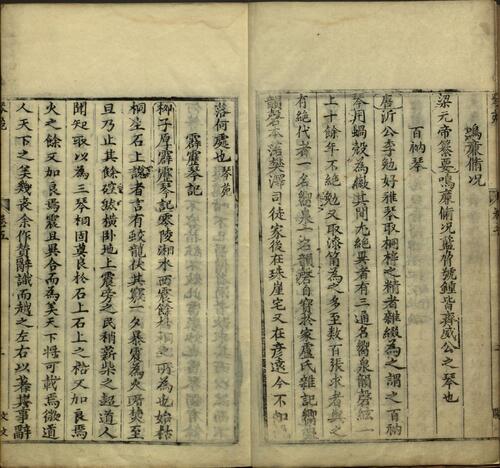 鳴廉脩况
梁元帝纂要鳴廉脩况藍脅號鐘皆齊威公之琴也
百衲琴
唐汧公李勉好雅琴取桐梓之精者雜綴為之謂之百衲
琴用蝸殼為徽其間九絶異者有三通名響泉韻磬絃一
上十餘年不絶勉又取漆筩為之多至數百張求者與之
有絶代者一名響泉一名韻磬自寶於家盧氏雜記響泉
韻磬本治樊澤司徒家後在珠崖宅又在彦遠今不知
落何處也 琴苑
霹靂琴記
柳子厚霹靂琴記零陵湘水西震餘枯桐之所為也始枯
桐生石上說者言有蛟龍伏其竅一夕暴震為火所焚至
旦乃止其餘硿然橫掛地上震旁之民稍薪柴之超道人
聞知取以為三琴桐固莫良於石上石上之梧又加良焉
火之餘又加良焉震且異合而為美天下將可載焉微道
人天下之美幾喪余作贊辭識而越之左右以著其事辭
卷五